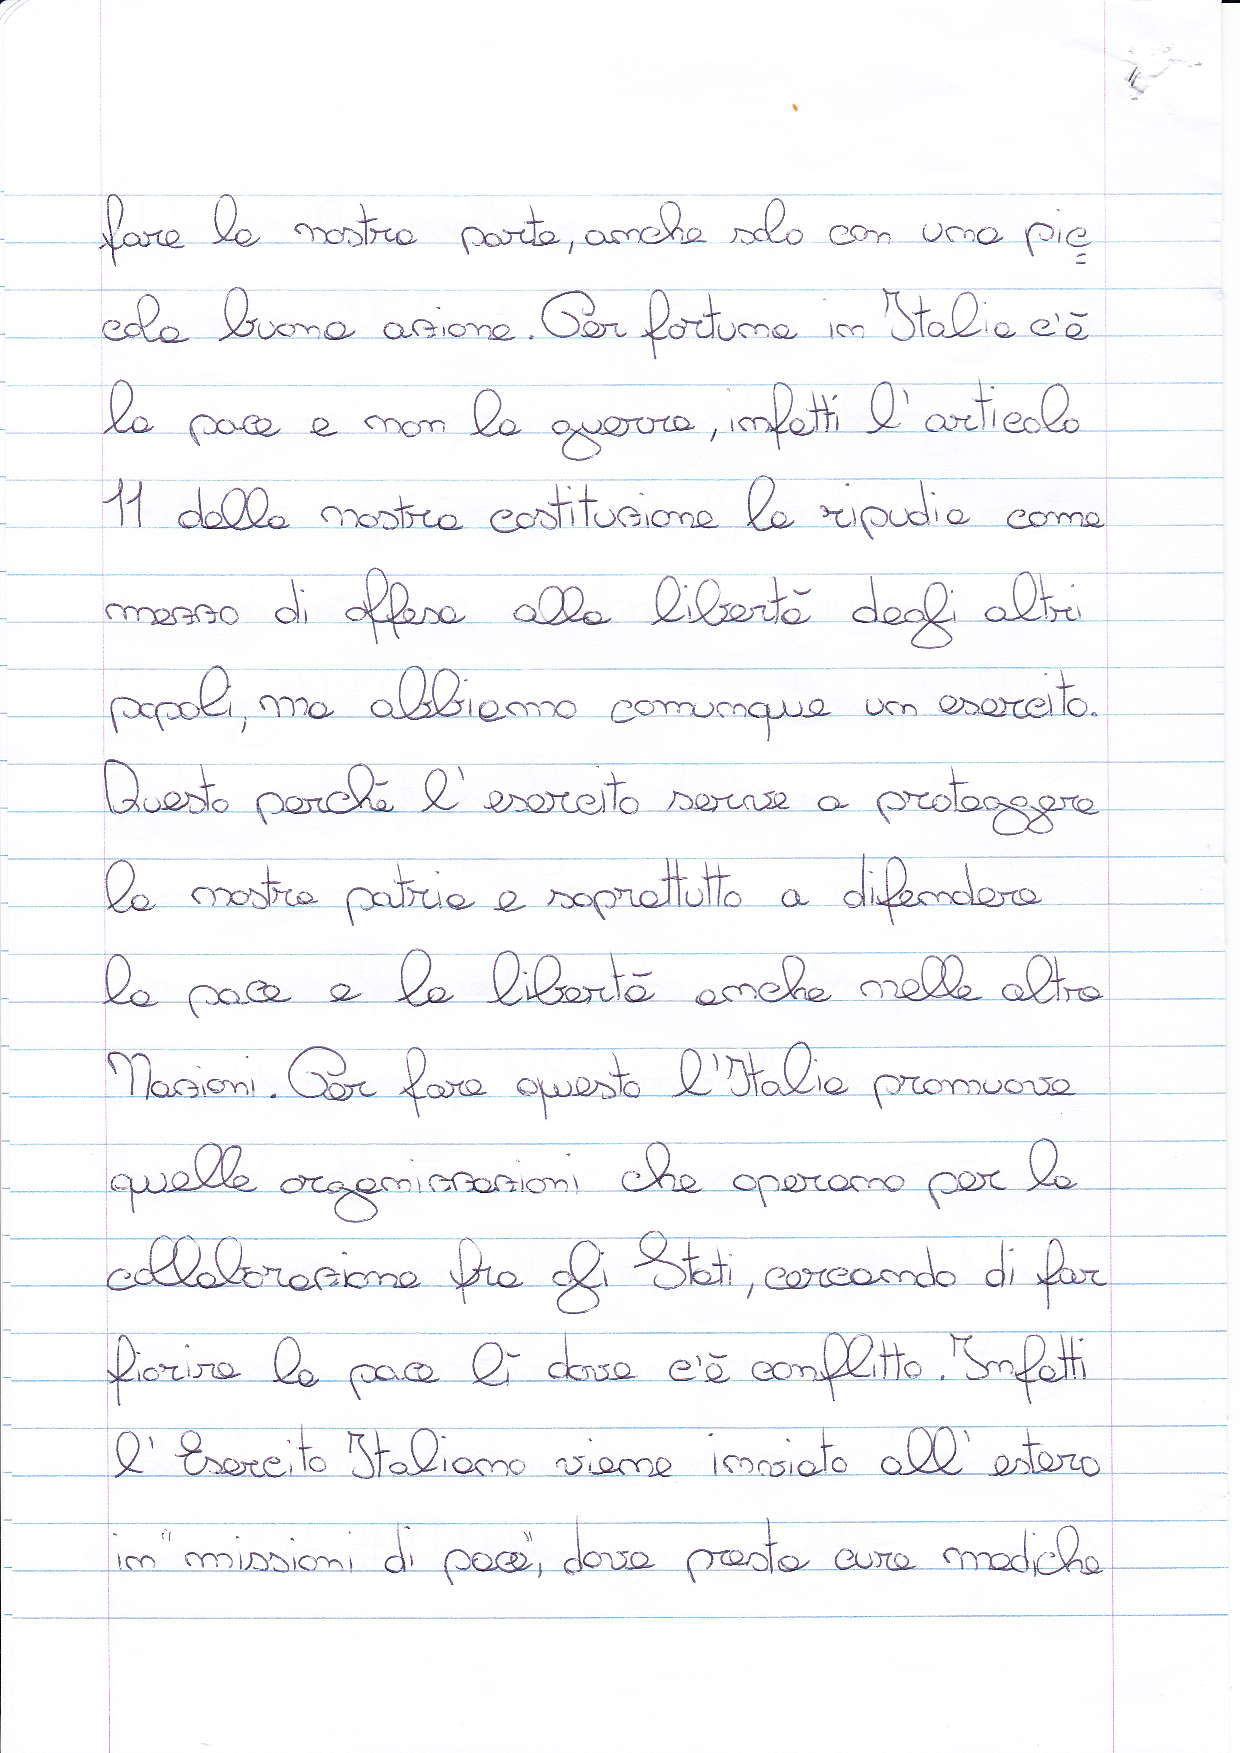 fare la nostra parte, anche solo con una pic=
cola buona azione. Per fortuna in Italia c'è
la pace e non la guerra, infatti l'articolo
11 della nostra costituzione la ripudia come
mezzo di offesa alla libertà degli altri
popoli, ma abbiamo comunque un esercito.
Questo perché l'esercito serve a proteggere
la nostra patria e soprattutto a difendere
la pace e la libertà anche nelle altre
Nazioni. Per fare questo l'Italia promuove
quelle organizzazioni che operano per la
collaborazione fra gli Stati, cercando di far
fiorire la pace lì dove c'è conflitto. Infatti
l'Esercito Italiano viene inviato all'estero
in "missioni di pace", dove presta cure mediche